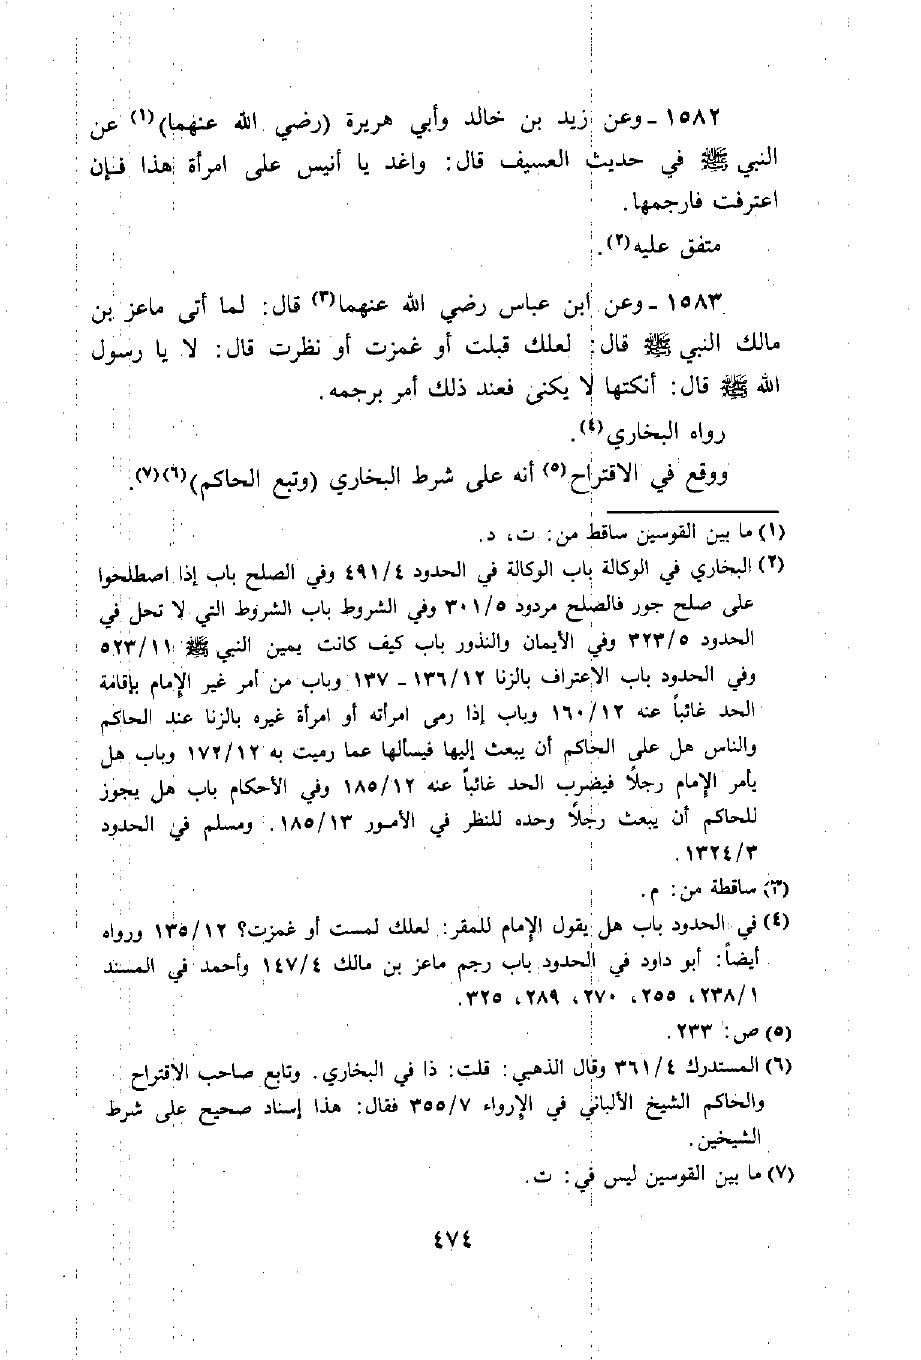 ١٥٨٢ ـ وعن زيد بن خالد وأبي هريرة (رضي الله عنهما)(١) عن
النبي ﷺ في حديث العسيف قال: واغد يا أنيس على امرأة هذا فإن
اعترفت فارجمها.
متفق عليه(٢).
١٥٨٣ ـ وعن ابن عباس رضي الله عنهما(٣) قال: لما أتى ماعز بن
مالك النبي ﷺ قال: لعلك قبلت أو غمزت أو نظرت قال: لا يا رسول
الله ﷺ قال: أنكتها لا يكنى فعند ذلك أمر برجمه.
رواه البخاري(٤).
ووقع في الاقتراح(٥) أنه على شرط البخاري (وتبع الحاكم)(٦)(٧).
(١) ما بين القوسين ساقط من: ت، د.
(٢) البخاري في الوكالة باب الوكالة في الحدود ٤٩١/٤ وفي الصلح باب إذا اصطلحوا
على صلح جور فالصلح مردود ٣٠١/٥ وفي الشروط باب الشروط التي لا تحل في
الحدود ٣٢٣/٥ وفي الأيمان والنذور باب كيف كانت يمين النبي ﷺ ٥٢٣/١١
وفي الحدود باب الاعتراف بالزنا ١٣٦/١٢ ـ ١٣٧ وباب من أمر غير الإمام بإقامة
الحد غائباً عنه ١٦٠/١٢ وباب إذا رمى امرأته أو امرأة غيره بالزنا عند الحاكم
والناس هل على الحاكم أن يبعث إليها فيسألها عما رميت به ١٧٢/١٢ وباب هل
يأمر الإمام رجلاً فيضرب الحد غائباً عنه ١٨٥/١٢ وفي الأحكام باب هل يجوز
للحاكم أن يبعث رجلاً وحده للنظر في الأمور ١٨٥/١٣. ومسلم في الحدود
١٣٢٤/٣.
(٣) ساقطة من: م.
(٤) في الحدود باب هل يقول الإمام للمقر: لعلك لمست أو غمزت؟ ١٣٥/١٢ ورواه
أيضاً: أبو داود في الحدود باب رجم ماعز بن مالك ١٤٧/٤ وأحمد في المسند
٢٣٨/١، ٢٥٥، ٢٧٠، ٢٨٩، ٣٢٥.
(٥) ص: ٢٣٣.
(٦) المستدرك ٣٦١/٤ وقال الذهبي: قلت: ذا في البخاري. وتابع صاحب الاقتراح
والحاكم الشيخ الألباني في الإرواء ٣٥٥/٧ فقال: هذا إسناد صحيح على شرط
الشيخين.
(٧) ما بين القوسين ليس في: ت.
٤٧٤